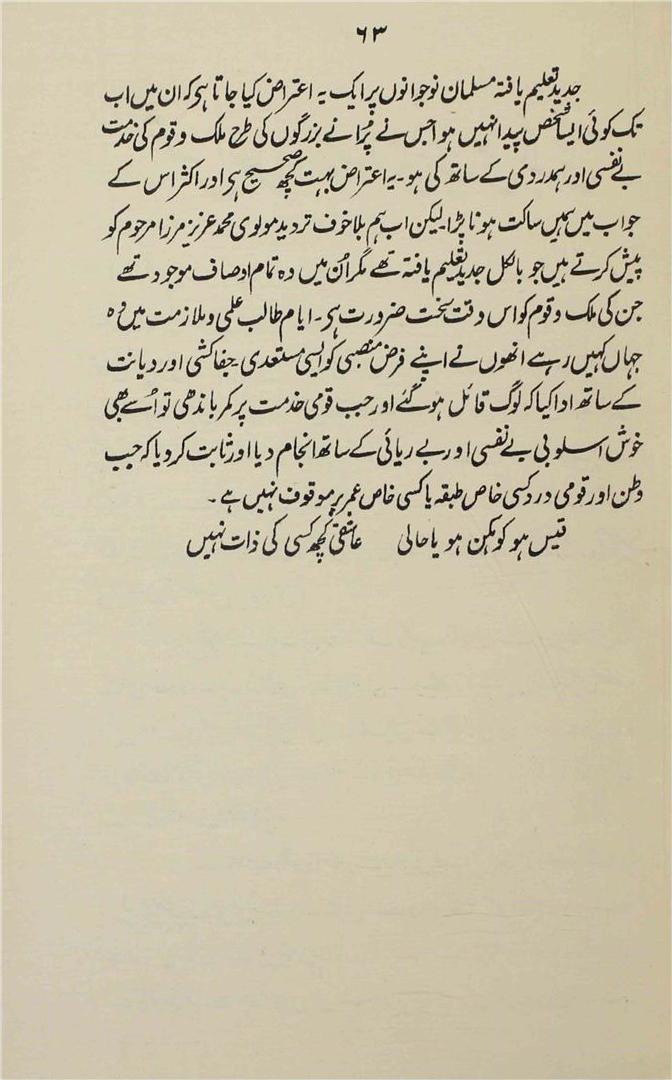 ۶۳
جدید تعلیم یافتہ مسلمان نوجوانوں پر ایک یہ اعتراض کیا جاتا ہی کہ ان میں اب
تک کوئی ایسا شخص پیدا نہیں ہوا جس نے پُرانے بزرگوں کی طرح ملک و قوم کی خدمت
بے نفسی اور ہمدردی کے ساتھ کی ہو۔ یہ اعتراض بہت کچھ صحیح ہی اور اکثر اس کے
جواب میں ہمیں ساکت ہونا پڑا لیکن اب ہم بلا خوف تردید مولوی محمد عزیز مرزا مرحوم کو
پیش کرتے ہیں جو بالکل جدید تعلیم یافتہ تھے مگر اُن میں وہ تمام اوصاف موجود تھے
جن کی ملک و قوم کو اس وقت سخت ضرورت ہی۔ ایام طالب علمی و ملازمت میں وہ
جہاں کہیں رہے انھوں نے اپنے فرض منصبی کو ایسی مستعدی۔ جفاکشی اور دیانت
کے ساتھ ادا کیا کہ لوگ قائل ہو گئے اور جب قومی خدمت پر کمر باندھی تو اُسے بھی
خوش اسلوبی بے نفسی اور بے ریائی کے ساتھ انجام دیا اور ثابت کر دیا کہ حب
وطن اور قومی درد کسی خاص طبقہ یا کسی خاص عمر پر موقوف نہیں ہے۔
قیس ہو کوہکن ہو یا حالی عاشقی کچھ کسی کی ذات نہیں